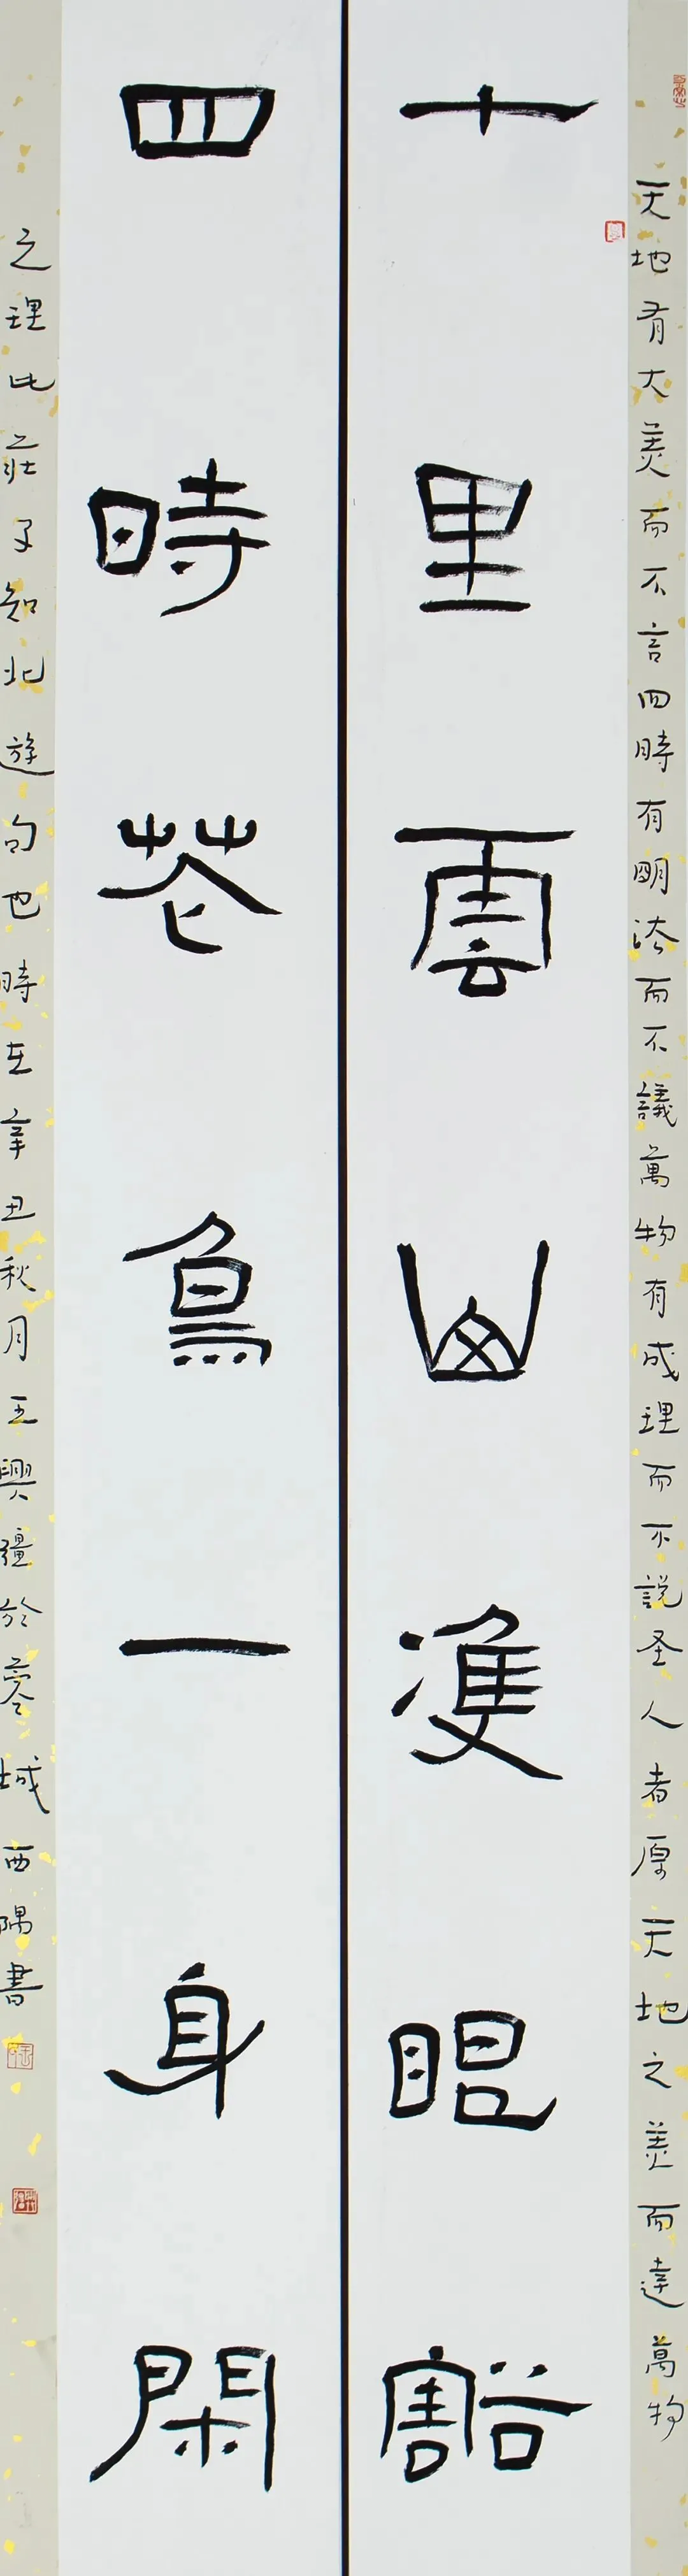 天地有大美而不言四時有明法而不議萬物有成理而不說圣人者原天地之美而達萬物
十里雲山雙眼豁
四時花鳥一身閑
之理此莊子知北遊句也時在辛丑秋月王興疆於蓉城西隅書